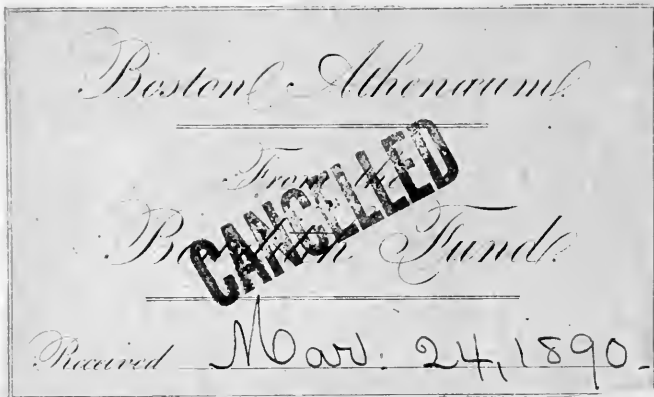 Boston Athenæum.
From the
Fund.
CANCELLED
Received Mar. 24, 1890.